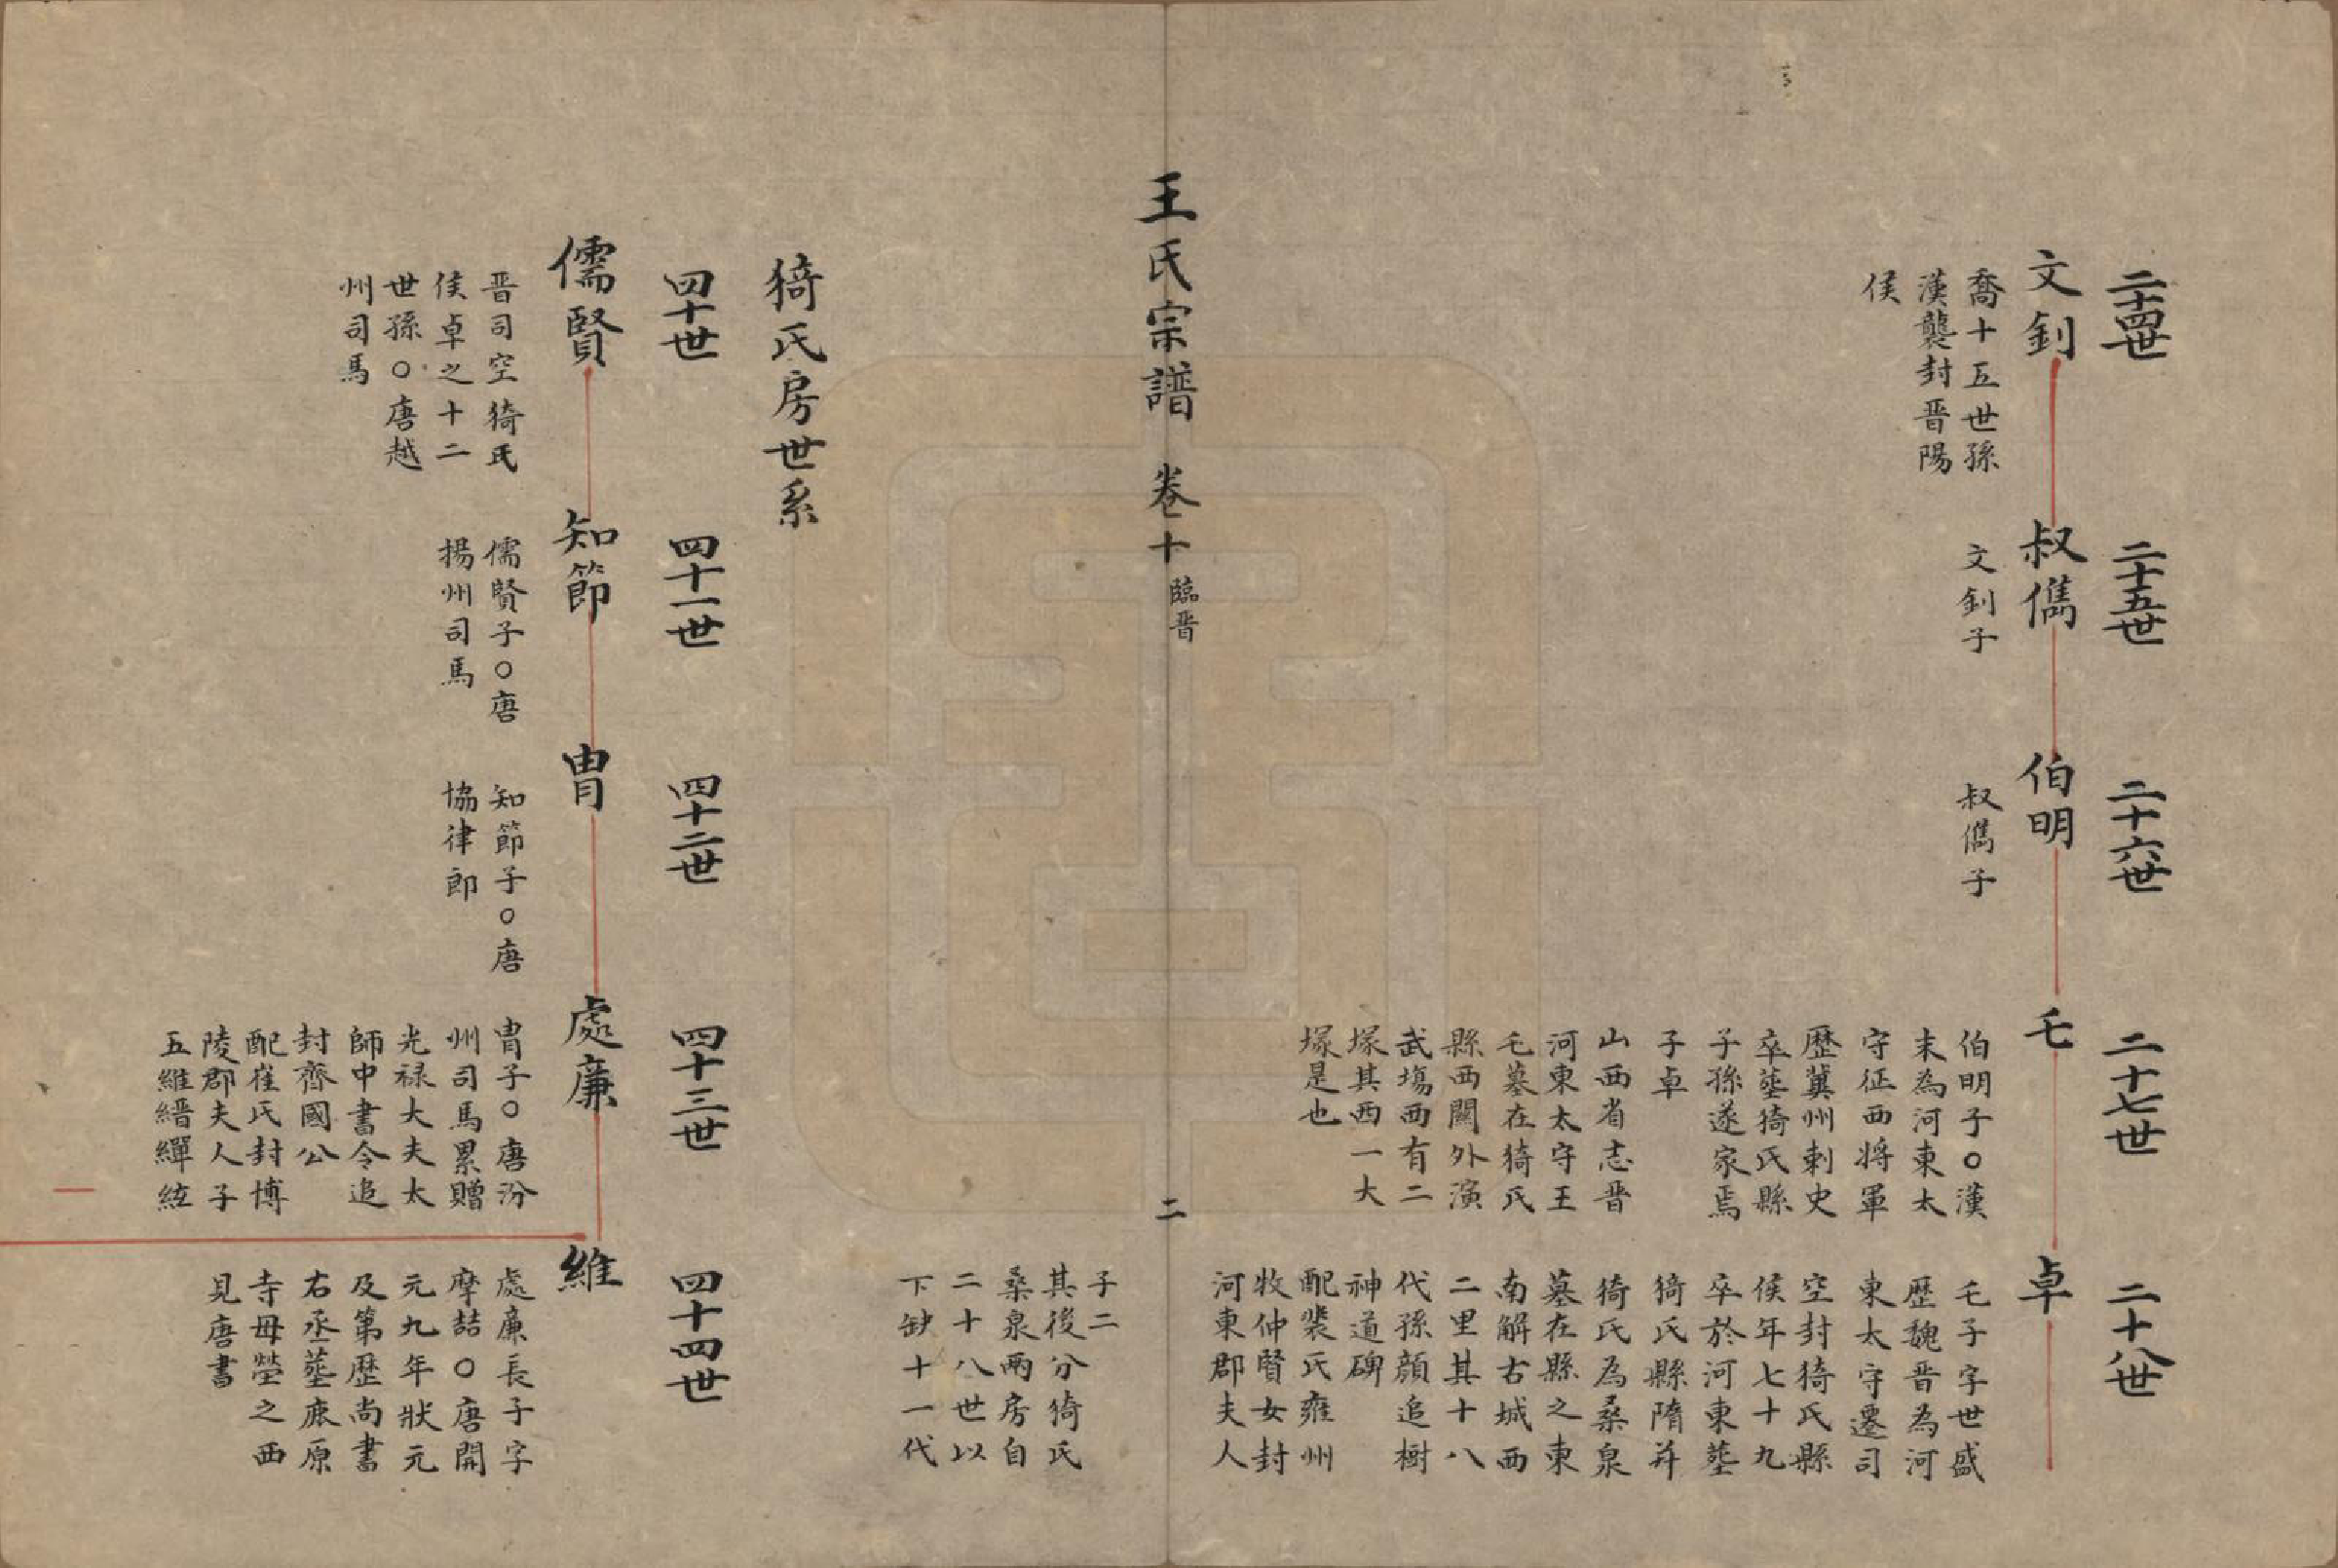 二十四世
文釗
喬十五世孫
漢襲封晋陽
侯
二十五世
叔儁
文釗子
二十六世
伯明
叔儁子
二十七世
乇
伯明子○漢
末為河東太
守征西將軍
歷冀州刺史
卒塟猗氏縣
子孫遂家焉
子卓
山西省志晋
河東太守王
乇墓在猗氏
縣西關外演
武塲西有二
塚其西一大
塚是也
二十八世
卓
乇子字世盛
歷魏晋為河
東太守遷司
空封猗氏縣
侯年七十九
卒於河東塟
猗氏縣隋并
猗氏為桑泉
墓在縣之東
南解古城西
二里其十八
代孫顔追樹
神道碑
配裴氏雍州
牧仲賢女封
河東郡夫人
子二
其後分猗氏
桑泉兩房自
二十八世以
下缺十一代
王氏宗譜 卷十 臨晋
二
猗氏房世系
四十世
儒賢
晋司空猗氏
侯卓之十二
世孫○唐越
州司馬
四十一世
知節
儒賢子○唐
揚州司馬
四十二世
胄
知節子○唐
協律郎
四十三世
處廉
胄子○唐汾
州司馬累贈
光禄大夫太
師中書令追
封齊國公
配崔氏封博
陵郡夫人子
五維縉繟紘
四十四世
維
處廉長子字
摩詰○唐開
元九年狀元
及第歷尚書
右丞塟鹿原
寺毋塋之西
見唐書